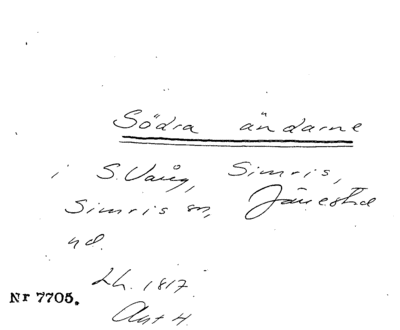 Södra ändarne
i S. Vång, Simris,
Simris sn, Järrestad
hd.
Lh. 1817.
Akt 4.
Nr 7705.